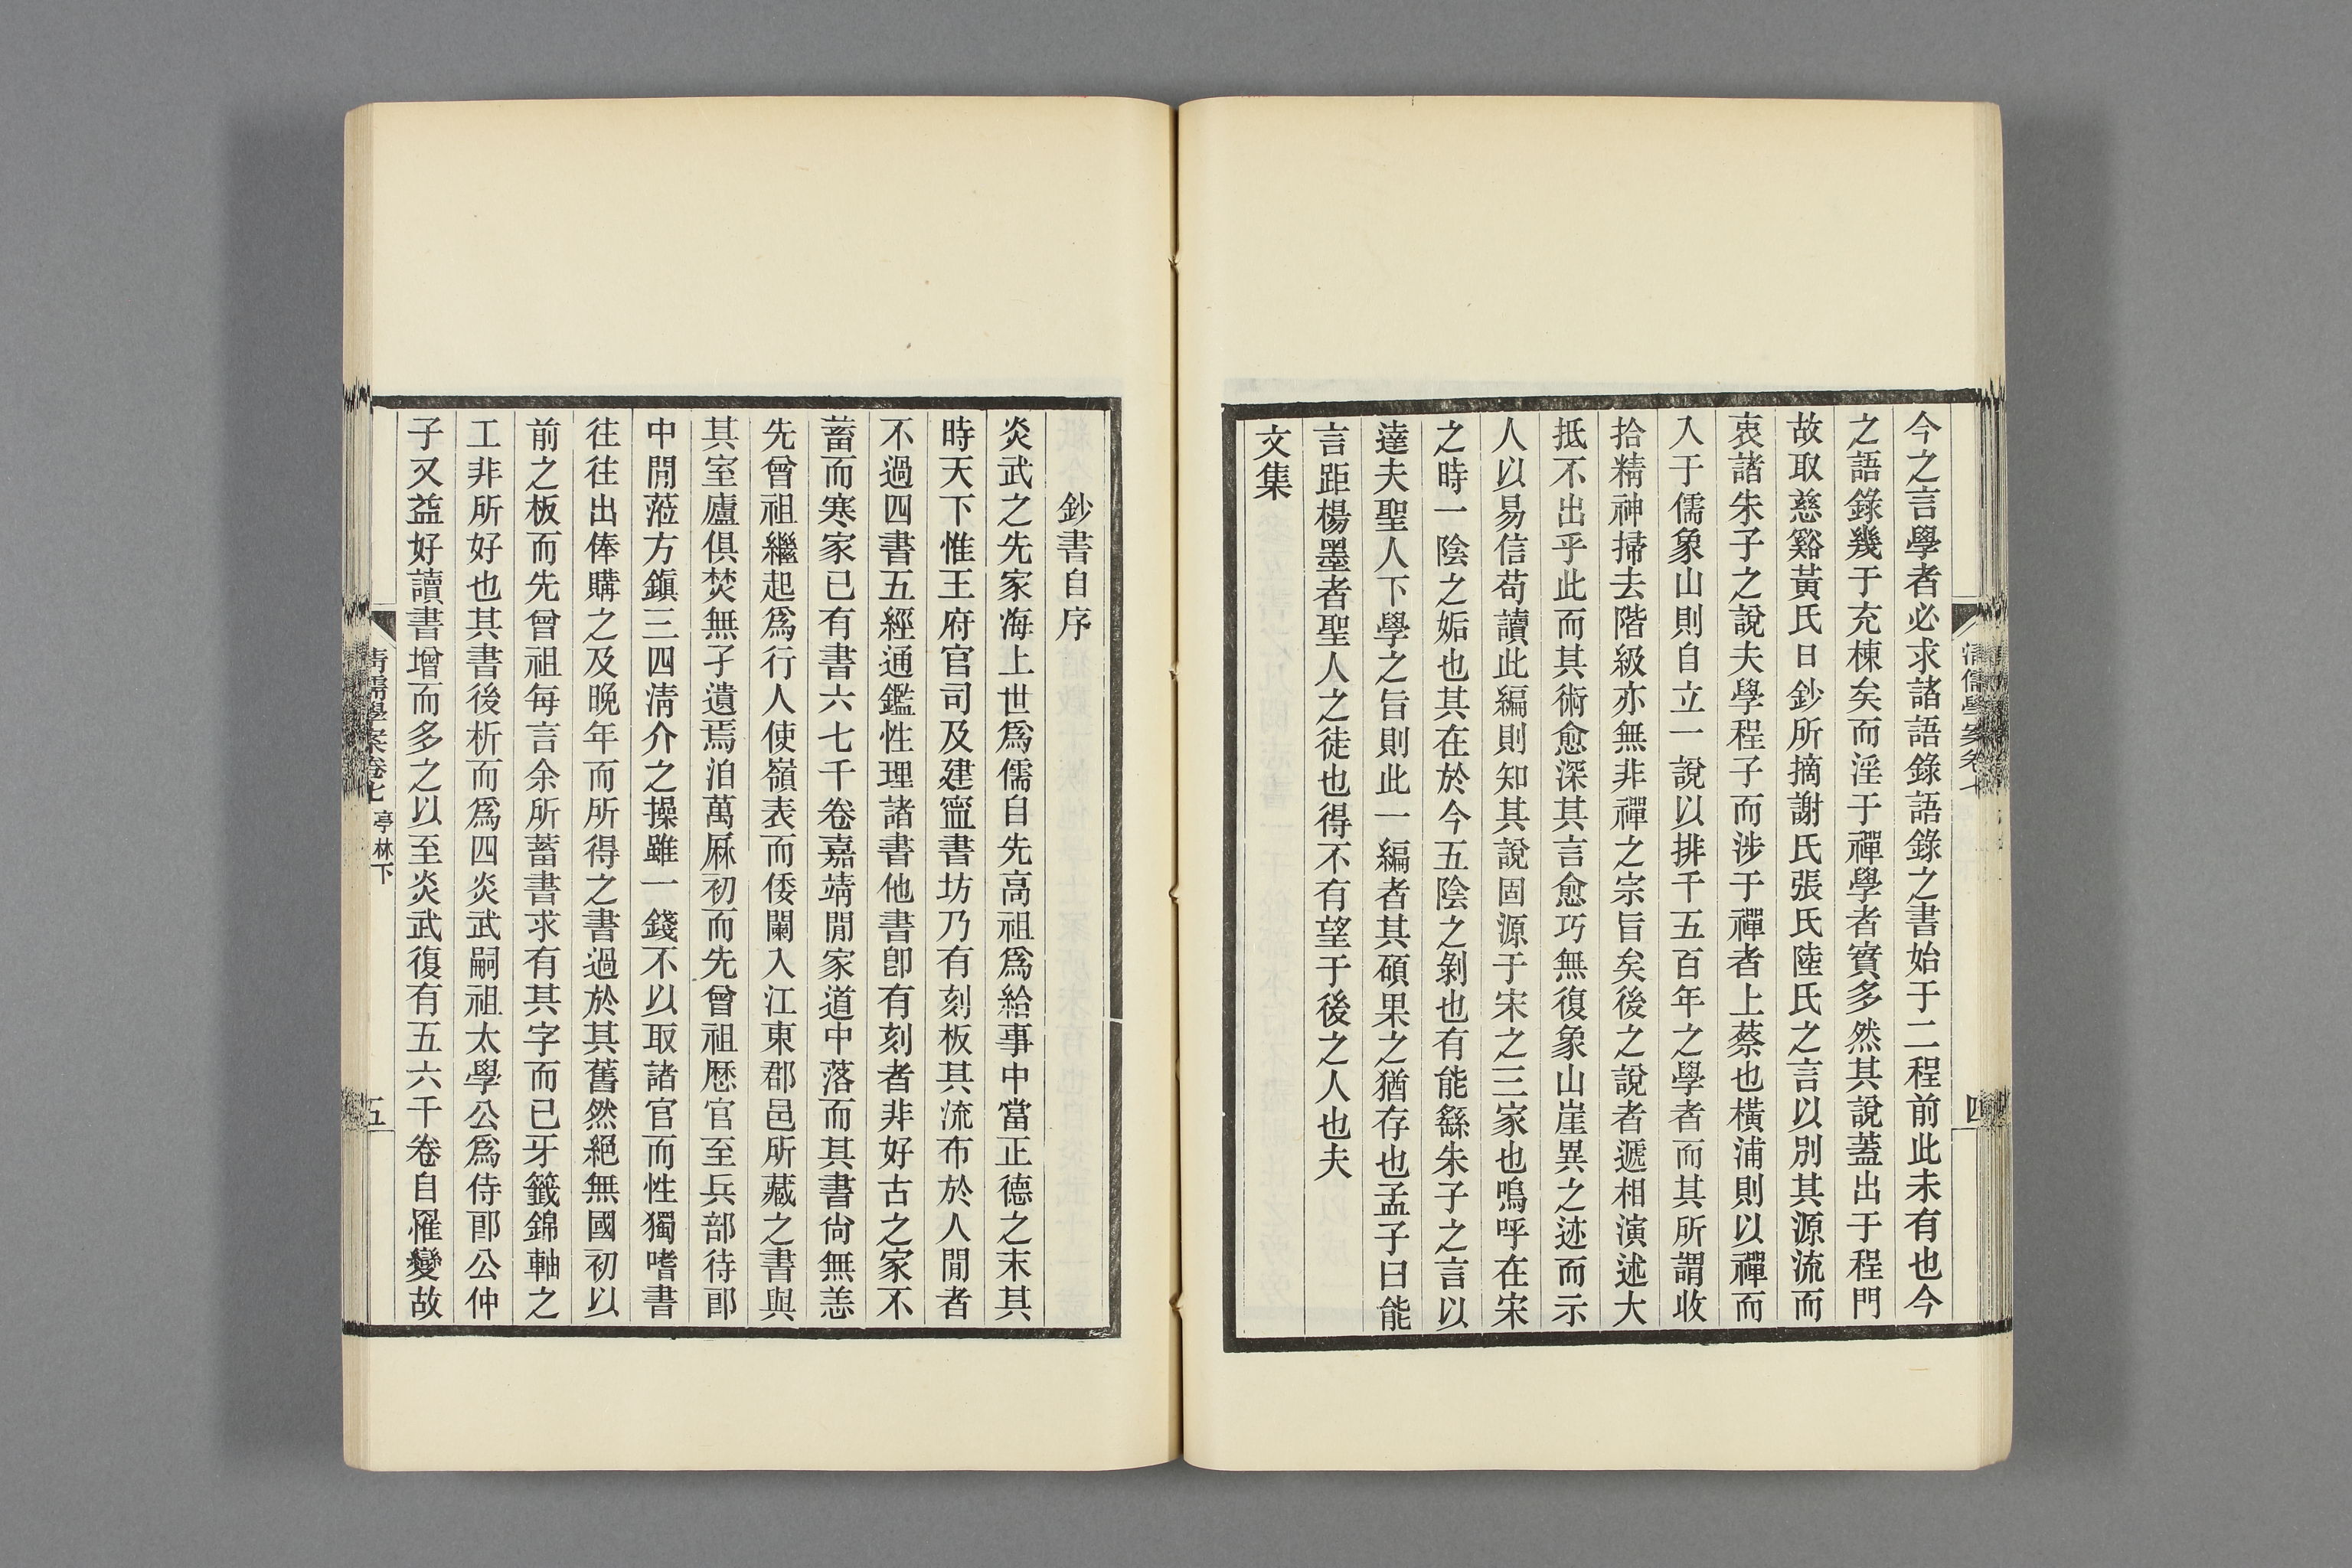 今之言學者必求諸語錄語錄之書始于二程前此未有也今
之語錄幾于充棟矣而淫于禪學者實多然其說蓋出于程門
故取慈谿黃氏日鈔所摘謝氏張氏陸氏之言以別其源流而
衷諸朱子之說夫學程子而涉于禪者上蔡也橫浦則以禪而
入于儒象山則自立一說以排千五百年之學者而其所謂收
拾精神掃去階級亦無非禪之宗旨矣後之說者遞相演述大
抵不出乎此而其術愈深其言愈巧無復象山崖異之迹而示
人以易信苟讀此編則知其說固源于宋之三家也嗚呼在宋
之時一陰之姤也其在於今五陰之剝也有能繇朱子之言以
達夫聖人下學之旨則此一編者其碩果之猶存也孟子曰能
言距楊墨者聖人之徒也得不有望于後之人也夫
文集
清儒學案卷七
四
鈔書自序
炎武之先家海上世爲儒自先高祖爲給事中當正德之末其
時天下惟王府官司及建寧書坊乃有刻板其流布於人閒者
不過四書五經通鑑性理諸書他書卽有刻者非好古之家不
蓄而寒家已有書六七千卷嘉靖閒家道中落而其書尙無恙
先曾祖繼起爲行人使嶺表而倭闌入江東郡邑所藏之書與
其室廬俱焚無孑遺焉洎萬厤初而先曾祖厯官至兵部侍郎
中閒蒞方鎭三四淸介之操雖一錢不以取諸官而性獨嗜書
往往出俸購之及晚年而所得之書過於其舊然絕無國初以
前之板而先曾祖每言余所蓄書求有其字而已牙籤錦軸之
工非所好也其書後析而爲四炎武嗣祖太學公爲侍郎公仲
子又益好讀書增而多之以至炎武復有五六千卷自罹變故
清儒學案卷七 亭林下
五